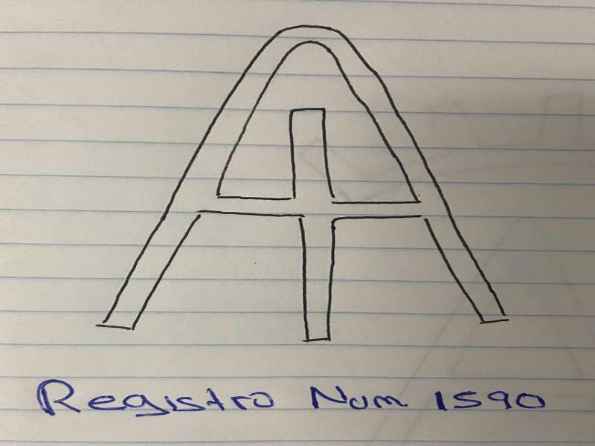 Registro Num 1590